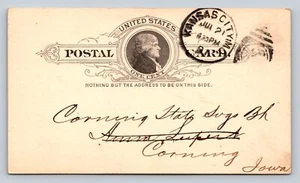 UNITED STATES
POSTAL CARD
ONE CENT
NOTHING BUT THE ADDRESS TO BE ON THIS SIDE.
KANSAS CITY, M
JUL 21
PM
Corning State Svgs Bk
Corning
Iowa